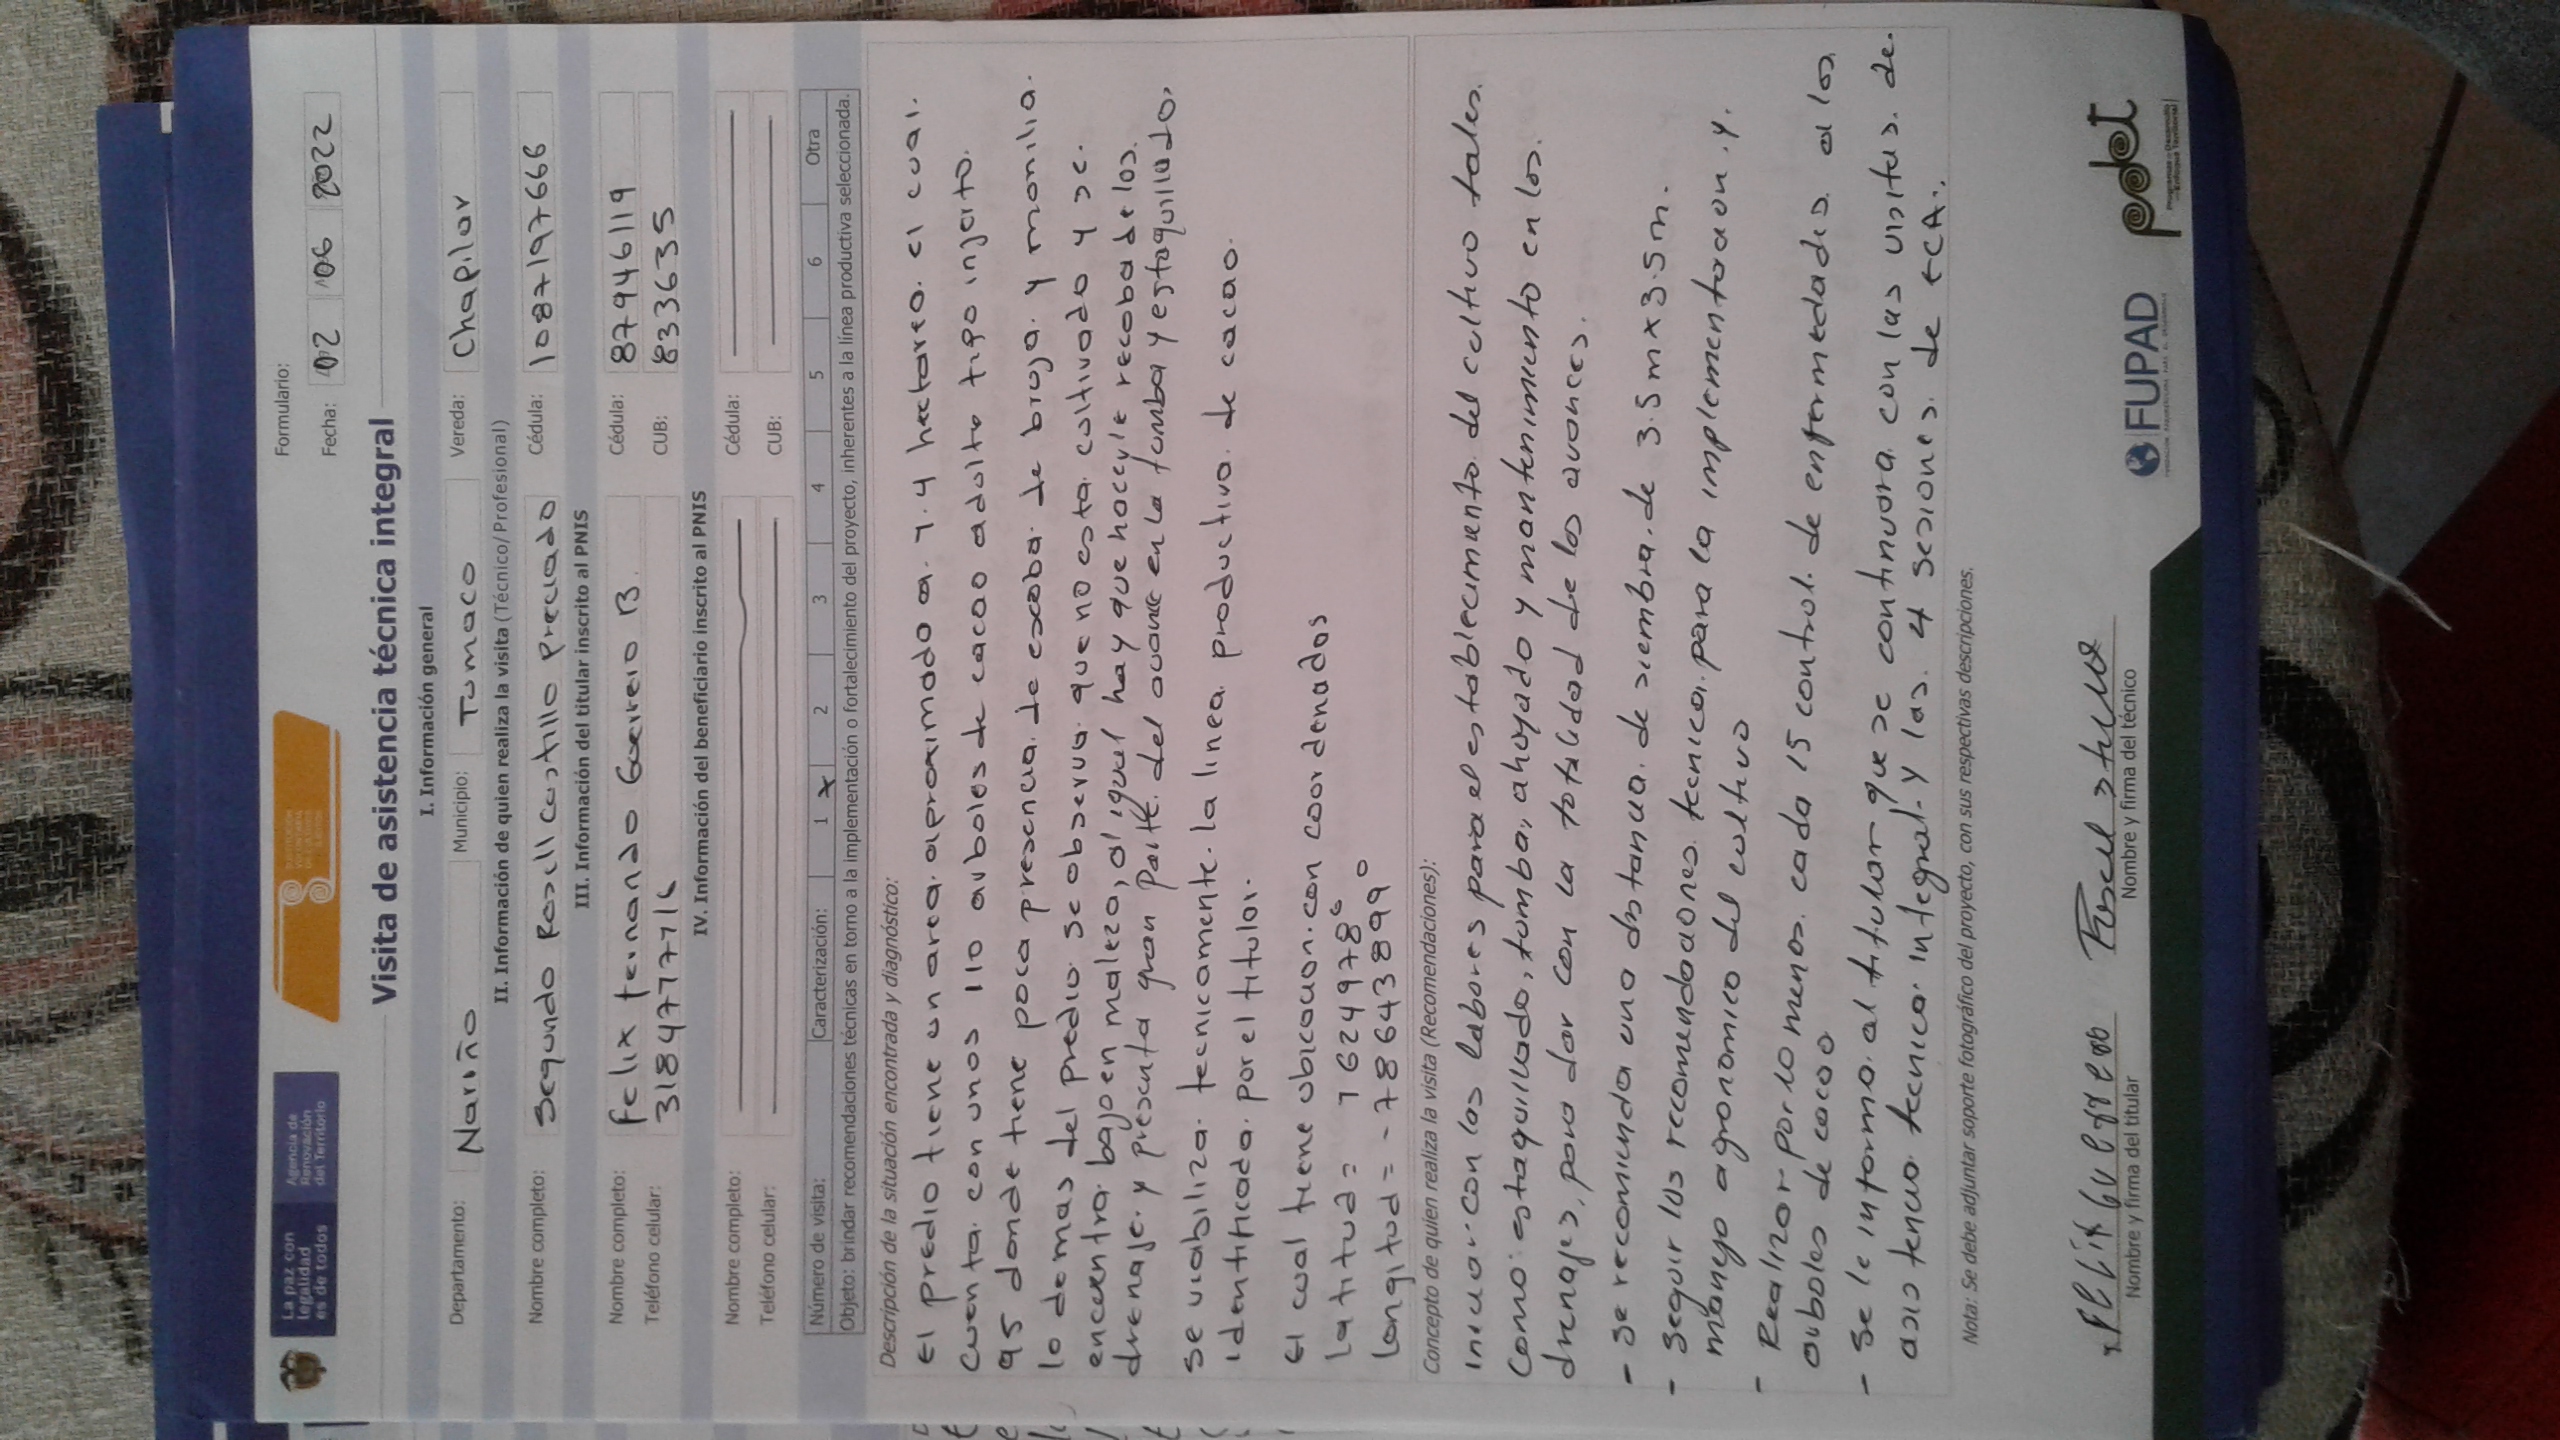 La paz con
legalidad
es de todos
Agencia de
Renovación
del Territorio
Formulario:
Fecha: 02 06 2022
Visita de asistencia técnica integral
I. Información general
Departamento: Nariño Municipio: Tumaco Vereda: Chapilar
II. Información de quien realiza la visita (Técnico/Profesional)
Nombre completo: Segundo Rosell castillo Preciado Cédula: 1087197666
III. Información del titular inscrito al PNIS
Nombre completo: Felix fernando Guerrero B. Cédula: 87946119
Teléfono celular: 3184777716 CUB: 833635
IV. Información del beneficiario inscrito al PNIS
Nombre completo: Cédula:
Teléfono celular: CUB:
Número de visita: Caracterización: 1 x 2 3 4 5 6 Otra
Objeto: brindar recomendaciones técnicas en torno a la implementación o fortalecimiento del proyecto, inherentes a la línea productiva seleccionada.
Descripción de la situación encontrada y diagnóstico:
El predio tiene un area aproximada a 1.4 hectarea. el cual.
cuenta con unos 110 arboles de cacao adulto tipo injerto.
as donde tiene poca presencia de escoba de bruja y monilia.
lo demas del predio se observa que no esta cultivado y se.
encuentra bajo en maleza, al igual hay que hacerle recaba de los.
drenaje. y presenta gran parte del avance en la tumba y estaquillado,
se viabiliza tecnicamente la linea productiva de cacao.
identificada por el titular.
El cual tiene ubicacion con coordenados
Latitud = 1 624978°
Longitud = -78 643899°
Concepto de quien realiza la visita (Recomendaciones):
iniciar con las labores para el establecimiento del cultivo tales.
como: estaquillado, tumba, ahoyado y mantenimiento en los.
drenajes, para dar con la totalidad de los avances.
- se recomienda una distancia de siembra de 3.5m x 3.5m.
- seguir las recomendaciones tecnica para la implementacion y.
manejo agronomico del cultivo
- Realizar por lo menos cada 15 control de enfermedades a los
arboles de caco
- se le informa al titular que se continuara con las visitas de.
asistencia tecnica integral y las 4 sesiones de ECA.
Nota: Se debe adjuntar soporte fotográfico del proyecto, con sus respectivas descripciones.
Nombre y firma del titular
Nombre y firma del técnico
FUPAD
pdet